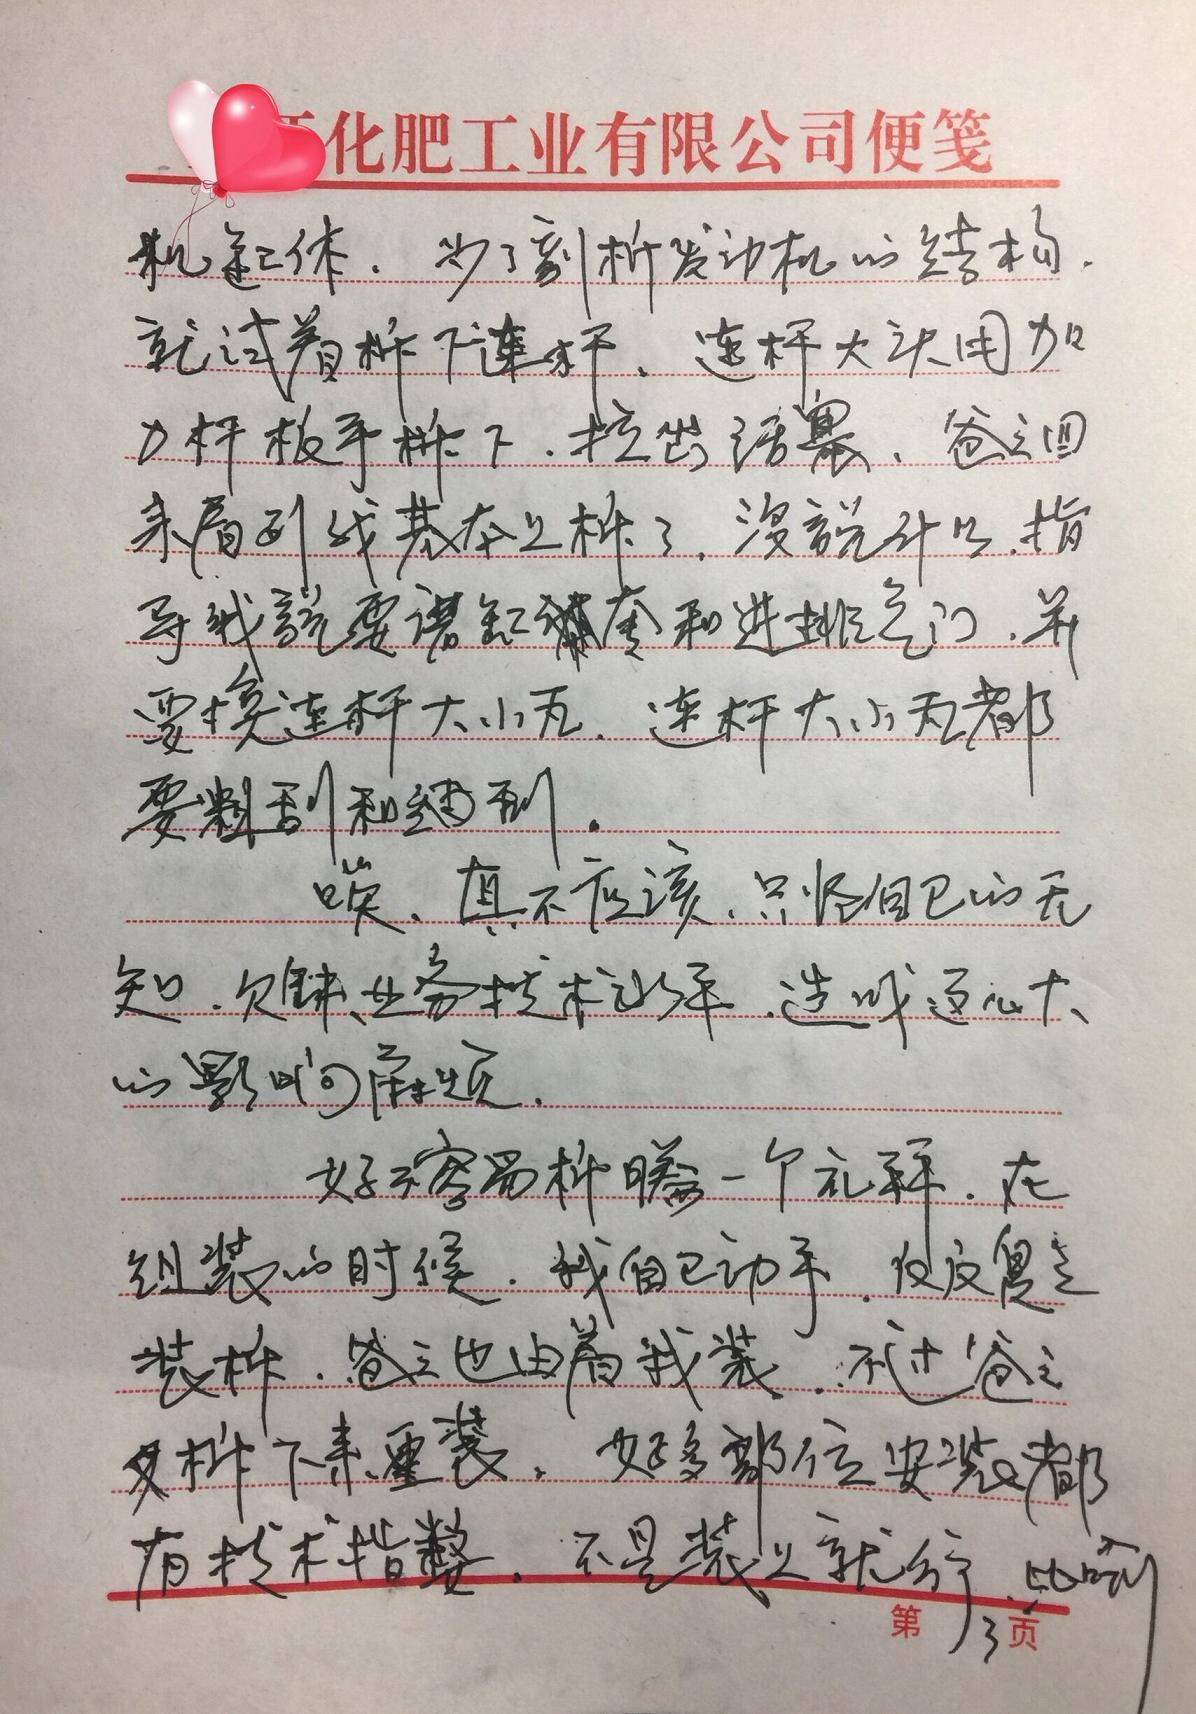 化肥工业有限公司便笺
机缸体.为了剖析发动机的结构.
就试着拆下连杆、连杆大头用加
力杆板手拆下.拉出活塞、爸爸回
来看到我基本上拆了.没説什么.指
导我説要镗缸套和进排气门.并
要换连杆大小瓦.连杆大小瓦都
要刮和.
唉、真不应该.只怪自己的无
知.欠缺业务技术水平.造成这么大
的影响麻烦.
好不容易拆腾一个礼拜.在
组装的时候.我自己动手.仅反复
装拆.爸爸也由着我装.不过爸爸
又拆下来重装.好多部位安装都
有技术指.不是装上就行.比喻
第3页